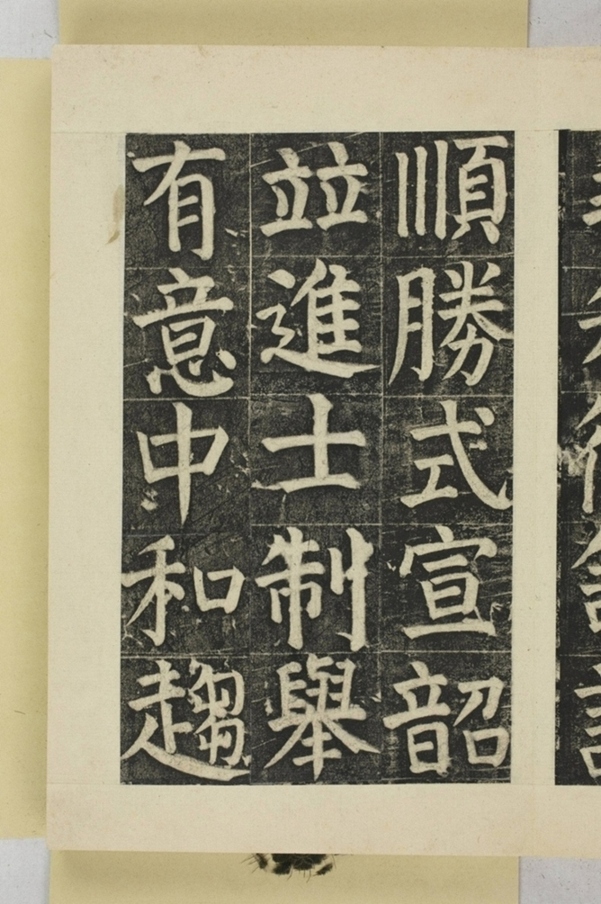 順勝式宣韶
並進士制舉
有意中和趨